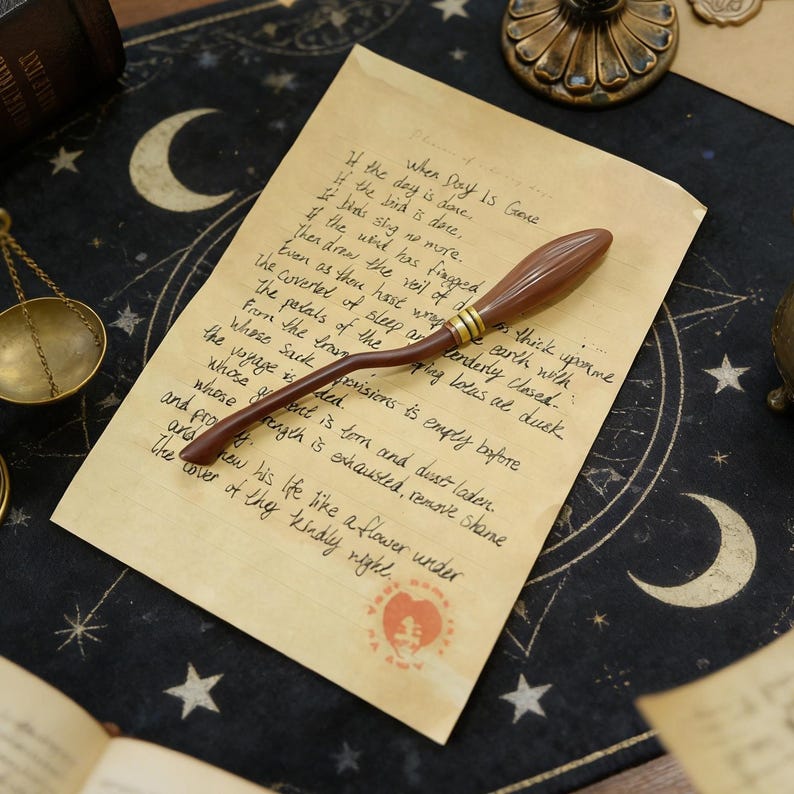 When Day Is Gone
If the day is done,
If the bird is done,
If birds sing no more.
If the wind has
Then draw the veil of thick upon me
Even as thou hast earth with
The coverlet of sleep and tenderly closed.
The petals of the lotus at dusk
From the
Whose sack provisions is empty before
the voyage is
Whose garment is torn and dust laden.
whose strength is exhausted, remove shame
and
and his life like a flower under
The cover of thy kindly night.
Your name